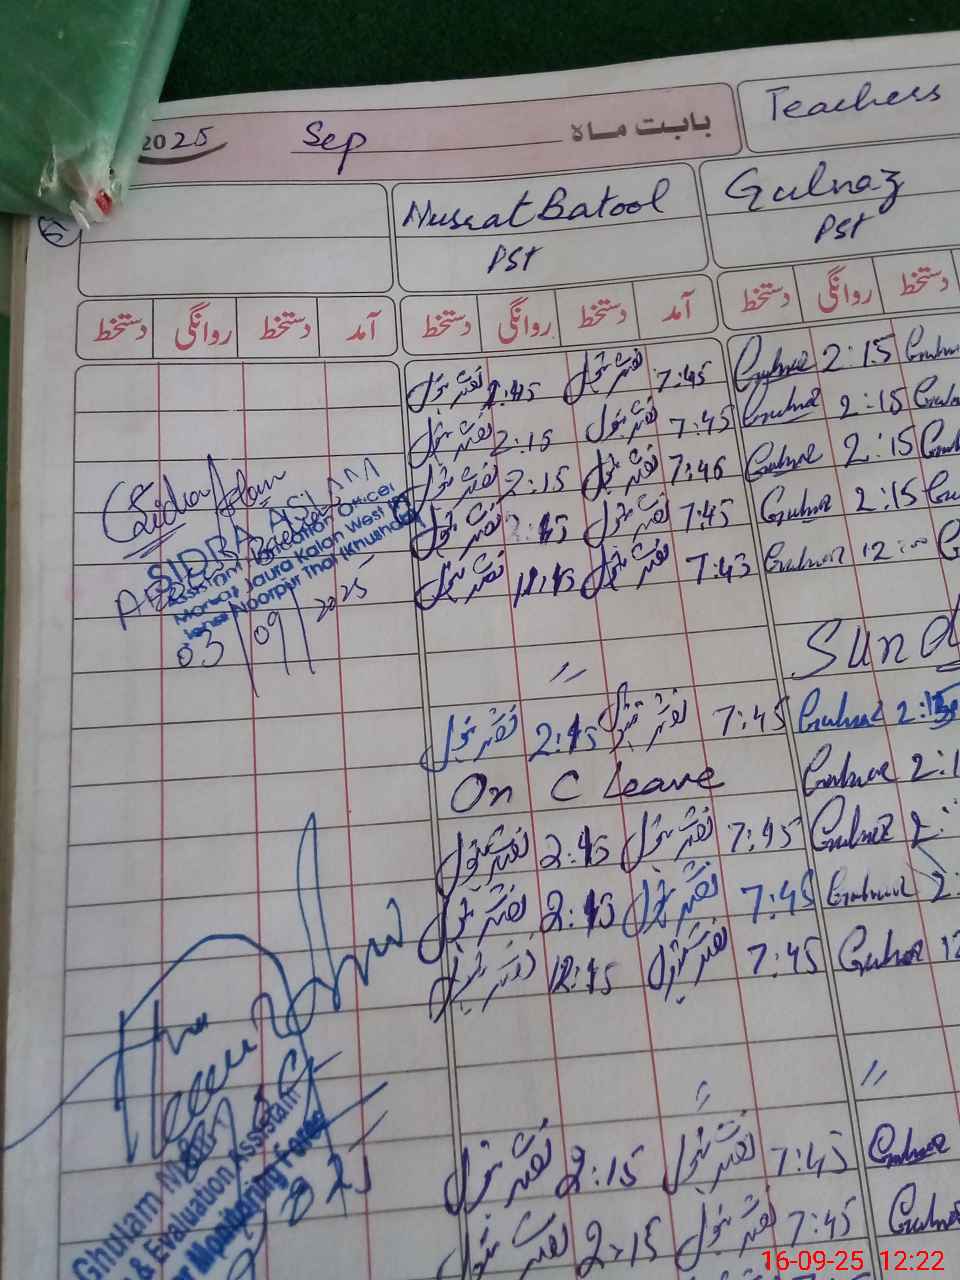 2025 Sep بابت ماہ
Teachers
Nusrat Batool
PST
Gulnaz
PST
آمد دستخط روانگی دستخط
آمد دستخط روانگی دستخط
دستخط روانگی دستخط
7:45 نصرت بتول نصرت بتول
2:15 Gulnaz
7:45 نصرت بتول 2:15 نصرت بتول
2:15 Gulnaz
7:46 نصرت بتول 2:15 نصرت بتول
2:15 Gulnaz
7:45 نصرت بتول نصرت بتول
2:15 Gulnaz
7:43 نصرت بتول نصرت بتول
Gulnaz 12:00
Sund
"
7:45 نصرت بتول 2:15 نصرت بتول
Gulnaz
On C Leave
Gulnaz
7:45 نصرت بتول 2:15 نصرت بتول
Gulnaz
7:45 نصرت بتول 2:15 نصرت بتول
Gulnaz
7:45 نصرت بتول 12:15 نصرت بتول
Gulnaz 12
" "
7:45 نصرت بتول 2:15 نصرت بتول
Gulnaz
7:45 نصرت بتول 2:15 نصرت بتول
Gulnaz
Sidra Aslam
SIDRA ASLAM
Assistant Education Officer
Markaz Jaura Kalan West
Noorpur Thal (Khushab)
03/09/2025
Ghulam
& Evaluation Assistant
Monitoring Force
16-09-25 12:22